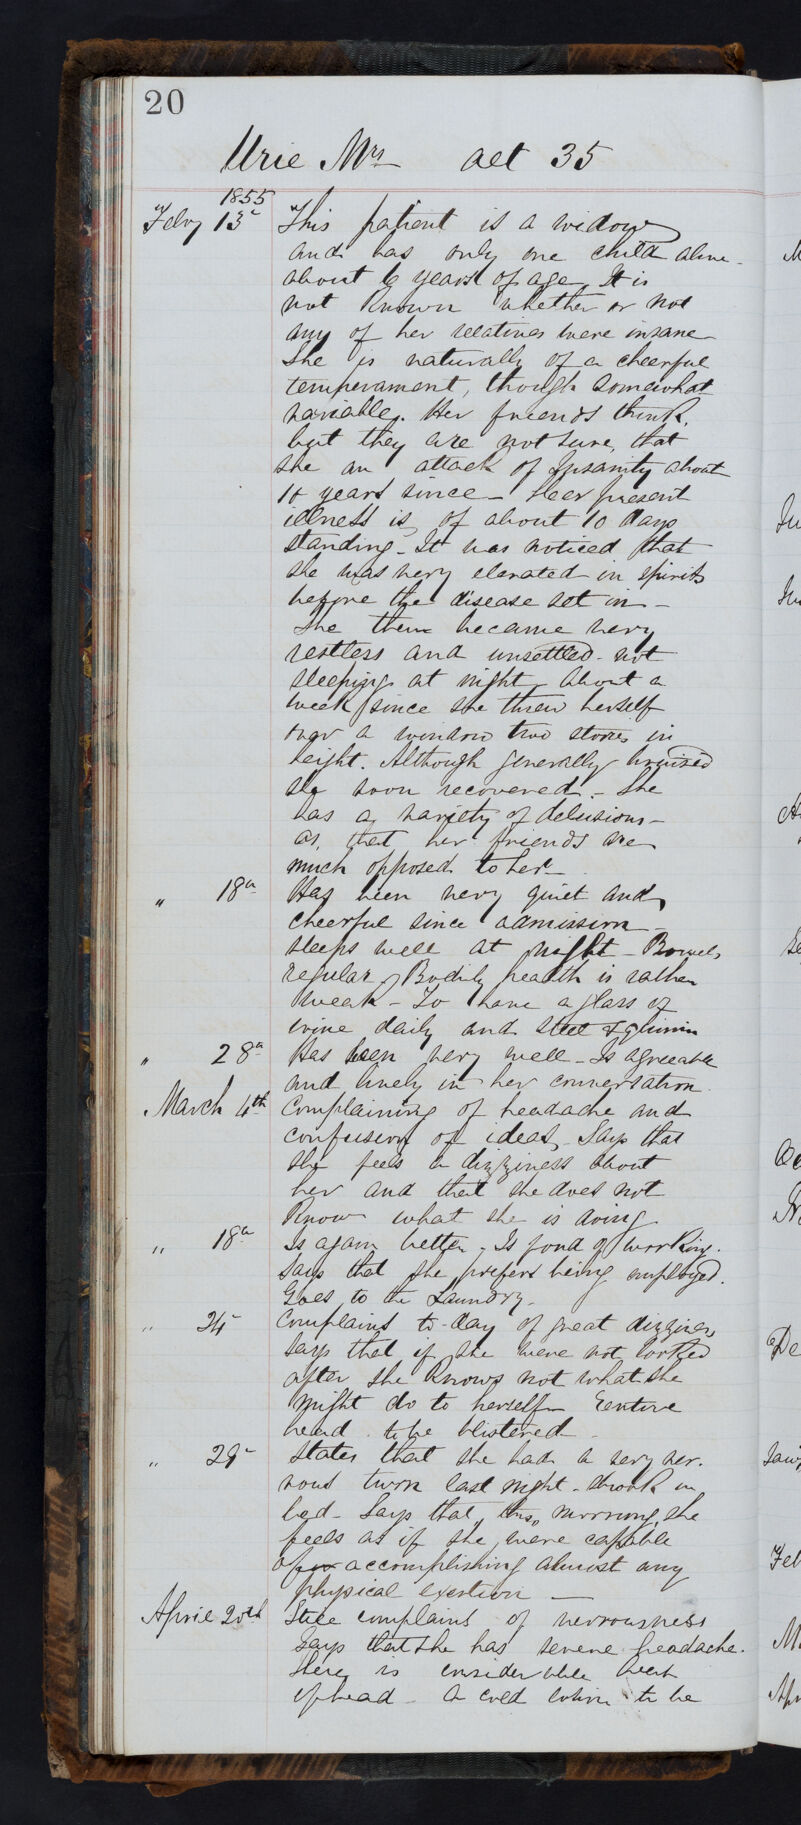 20
Urie Mrs aet 35
1855
Feby 13th This patient is a widow
and has only one child alive
about 6 years of age. It is
not known whether or not
any of her relatives were insane
She is naturally of a cheerful
temperament, though somewhat
variable. Her friends think,
but they are not sure, that
she an attack of Insanity about
10 years since - Her present
illness is, of about 10 days
standing - It was noticed that
she was very elevated in spirits
before the disease set in -
She then became very
restless and unsettled - not
sleeping at night - About a
week since she threw herself
over a window two stories in
height. Although generally bruised
she soon recovered. - She
has a variety of delusions -
as, that her friends are
much opposed to her -
" 18th Has been very quiet and
cheerful since admission -
sleeps well at night - Bowels
regular. Bodily health is rather
weak - To have a glass of
wine daily and steel &
" 28th Has been very well - Is agreeable
and lively in her conversation.
March 4th Complaining of headache and
confusion of ideas, - Says that
she feels a dizziness about
her and that she does not
know what she is doing
" 18th Is again better. Is fond of working.
Says that she prefers being employed.
Goes to the Laundry -
" 24 Complains to-day of great dizziness
says that if she were not looked
after she knows not what she
might do to herself - Entire
head to be blistered -
" 29 States that she had a very ner-
vous turn last night - shook in
bed - Says that this morning she
feels as if she were capable
of accomplishing almost any
physical exertion -
April 20th Still complains of nervousness
Says that she has severe headache.
There is considerable heat
of head - A cold lotion to be